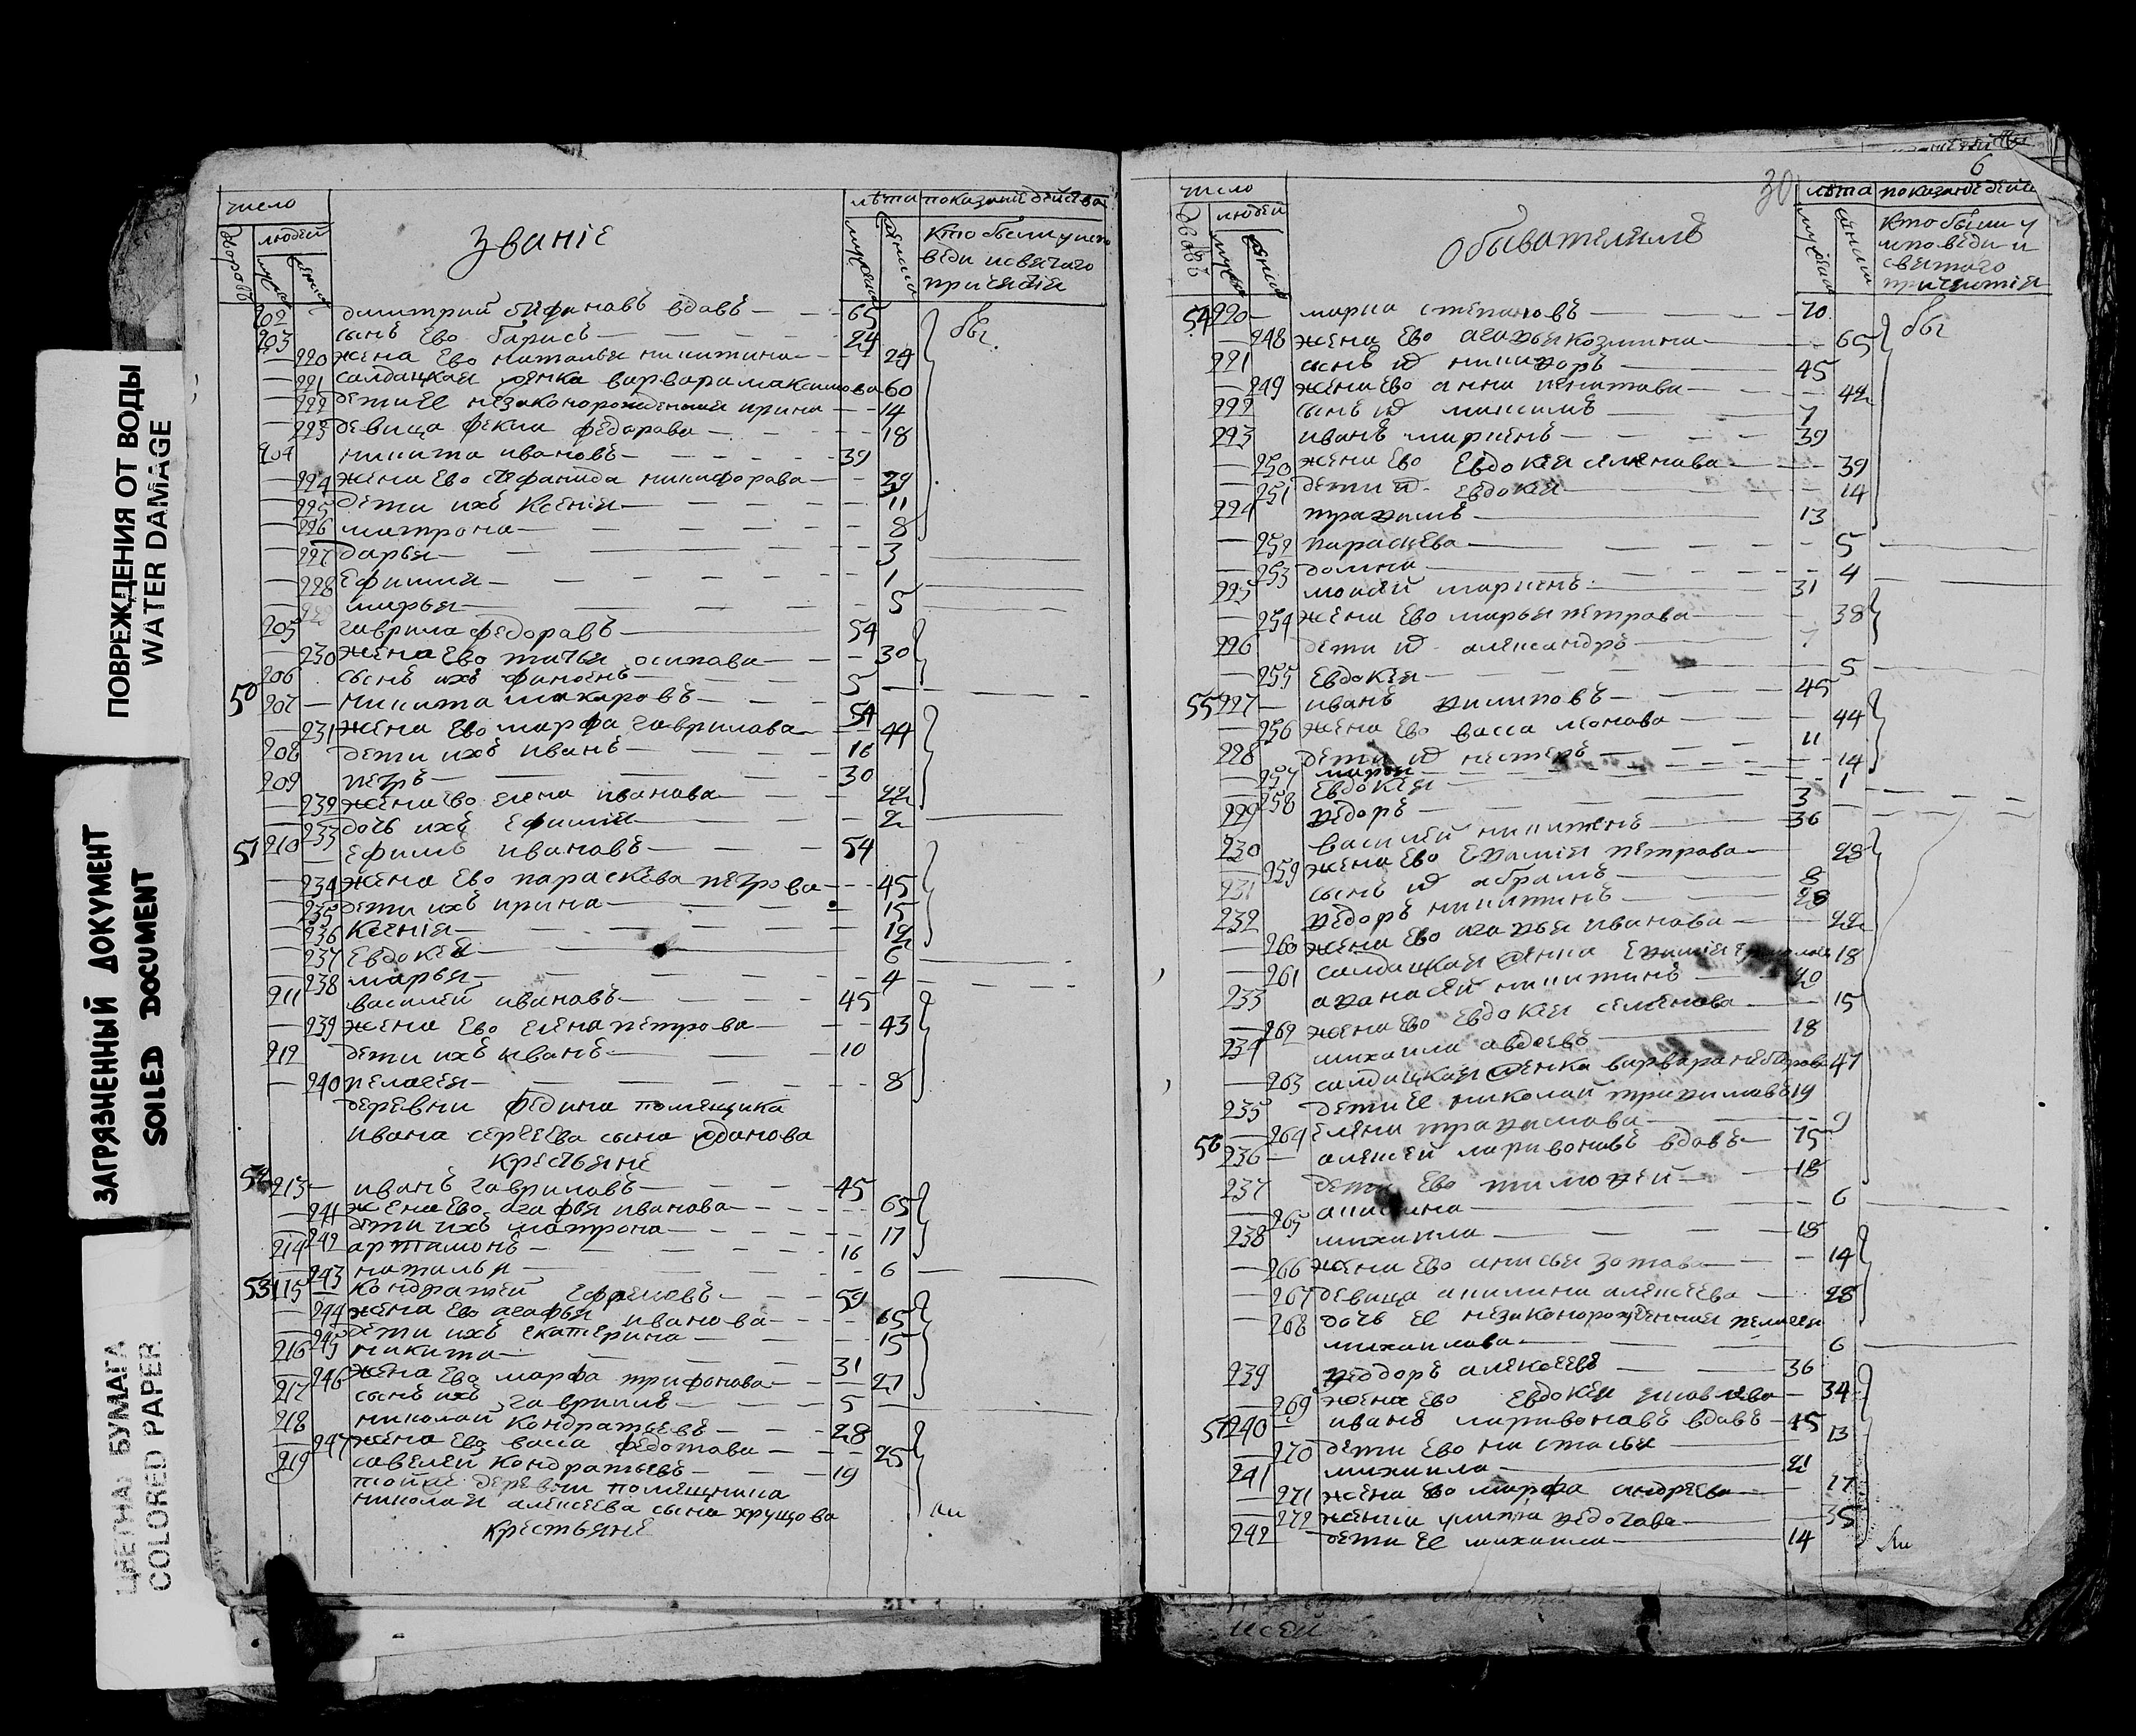 ПОВРЕЖДЕНИЯ ОТ ВОДЫ
WATER DAMAGE
ЗАГРЯЗНЕННЫЙ ДОКУМЕНТ
SOILED DOCUMENT
ЦВЕТНАЯ БУМАГА
COLORED PAPER
число
лѣта показание действа
дворовъ людей
Званіе
мужеска женска
Кто были у испо
веди и святаго
причастія
202 димитрий епифановъ вдовъ 65 бы
203 сынъ ево барисъ 24
220 жена ево наталья никитина 24
221 салдацкая женка варвара максимова 60
222 дети ее незаконорожденная ирина 14
223 девица фекла федорова 18
204 никита ивановъ 39
224 жена ево степанида никифорова 39
225 дети ихъ Ксенія 11
226 матрона 8
227 дарья 3
228 Ефимия 1
229 марья 5
205 гаврила федоравъ 54
230 жена ево татья осипава 30
206 сынъ ихъ 5
50 207 никита макаровъ 54
231 жена ево марфа гаврилава 44
208 дети ихъ иванъ 16
209 петръ 30
232 жена ево елена иванава 22
233 дочь ихъ ефимия 2
51 210 Ефимъ ивановъ 54
234 жена ево параскева петрова 45
235 дети ихъ ирина 15
236 Ксенія 12
237 Евдокея 6
238 марья 4
211 василей ивановъ 45
239 жена ево елена петрова 43
212 дети ихъ иванъ 10
240 пелагея 8
деревни федина помещика
ивана сергеева сына жданова
Крестьяне
52 213 иванъ гавриловъ 45
241 жена ево агафья иванова 65
242 дети ихъ матрона 17
214 артамонъ 16
243 наталья 6
53 115 Кондратей Ефремовъ 59
244 жена ево агафья иванова 65
245 дети ихъ екатерина 15
216 никита 31
246 жена ево марфа трифонова 27
217 сынъ ихъ гаврила 5
218 николай Кондратьевъ 28
247 жена ево васса федотава 25
219 савелей Кондратьевъ 19
тойже деревни помещика
николая алексеева сына хрущова
Крестьяне
30
6
число
лѣта показание действа
людей
Обывателемъ
Кто были у
исповеди и
святаго
причастія
54 220 марка степановъ 70 бы
248 жена ево агафья козмина 65
221 сынъ их никифоръ 45
249 жена ево анна никитава 42
222 сынъ их максимъ 7
223 иванъ маркенъ 39
250 жена ево Евдокея семенава 39
251 дети их Евдокея 14
224 трафимъ 13
252 параскева 5
253 домна 4
225 моисей маркенъ 31
254 жена ево марья петрава 38
226 дети их александръ 7
255 Евдокея 5
55 227 иванъ филиповъ 45
256 жена ево васса леонова 44
228 дети их нестеръ 11
257 марфа 14
258 Евдокея 1
229 федоръ 3
230 василей никитенъ 36
259 жена ево Ефимия петрава 28
231 сынъ их абрамъ 8
232 федоръ никитинъ 28
260 жена ево агафья иванова 22
261 салдацкая женка Ефимия 18
233 афанасей никитинъ 20
262 жена ево евдокея семенова 15
234 михаила авдеевъ 18
263 салдацкая женка варвара 47
235 дети ее николай трафимавъ 19
264 елена трафимава 9
56 236 алексей ларивонавъ вдовъ 75
237 дети ево тимофей 18
265 6
238 михаила 18
266 жена ево анисья зотава 14
267 девица акилина алексеева 28
268 дочь ее незаконорожденная пелагея
михаилава 6
239 феодоръ алексеевъ 36
269 жена ево Евдокея 34
57 240 иванъ ларивонавъ вдовъ 45
270 дети ево настасья 13
241 михаила 21
271 жена ево марфа андреева 17
272 федотава 35
242 дети ее михаила 14
исей